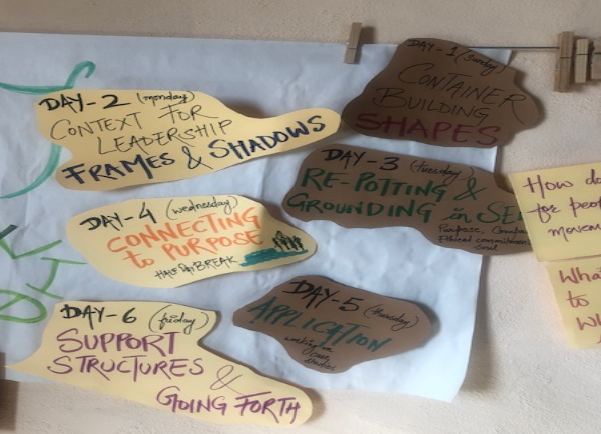 DAY-1 (Sunday)
CONTAINER
BUILDING
SHAPES
DAY-2 (monday)
CONTEXT FOR
LEADERSHIP
FRAMES & SHADOWS
DAY-3 (tuesday)
RE-POTTING &
GROUNDING in SE
Purpose,
Ethical commitment
Soul
DAY-4 (wednesday)
CONNECTING
to PURPOSE
HALF DAY BREAK
DAY-5 (thursday)
APPLICATION
working on
case
studies
DAY-6 (friday)
SUPPORT
STRUCTURES &
GOING FORTH
How do
for peop
movem
What
to
Wh